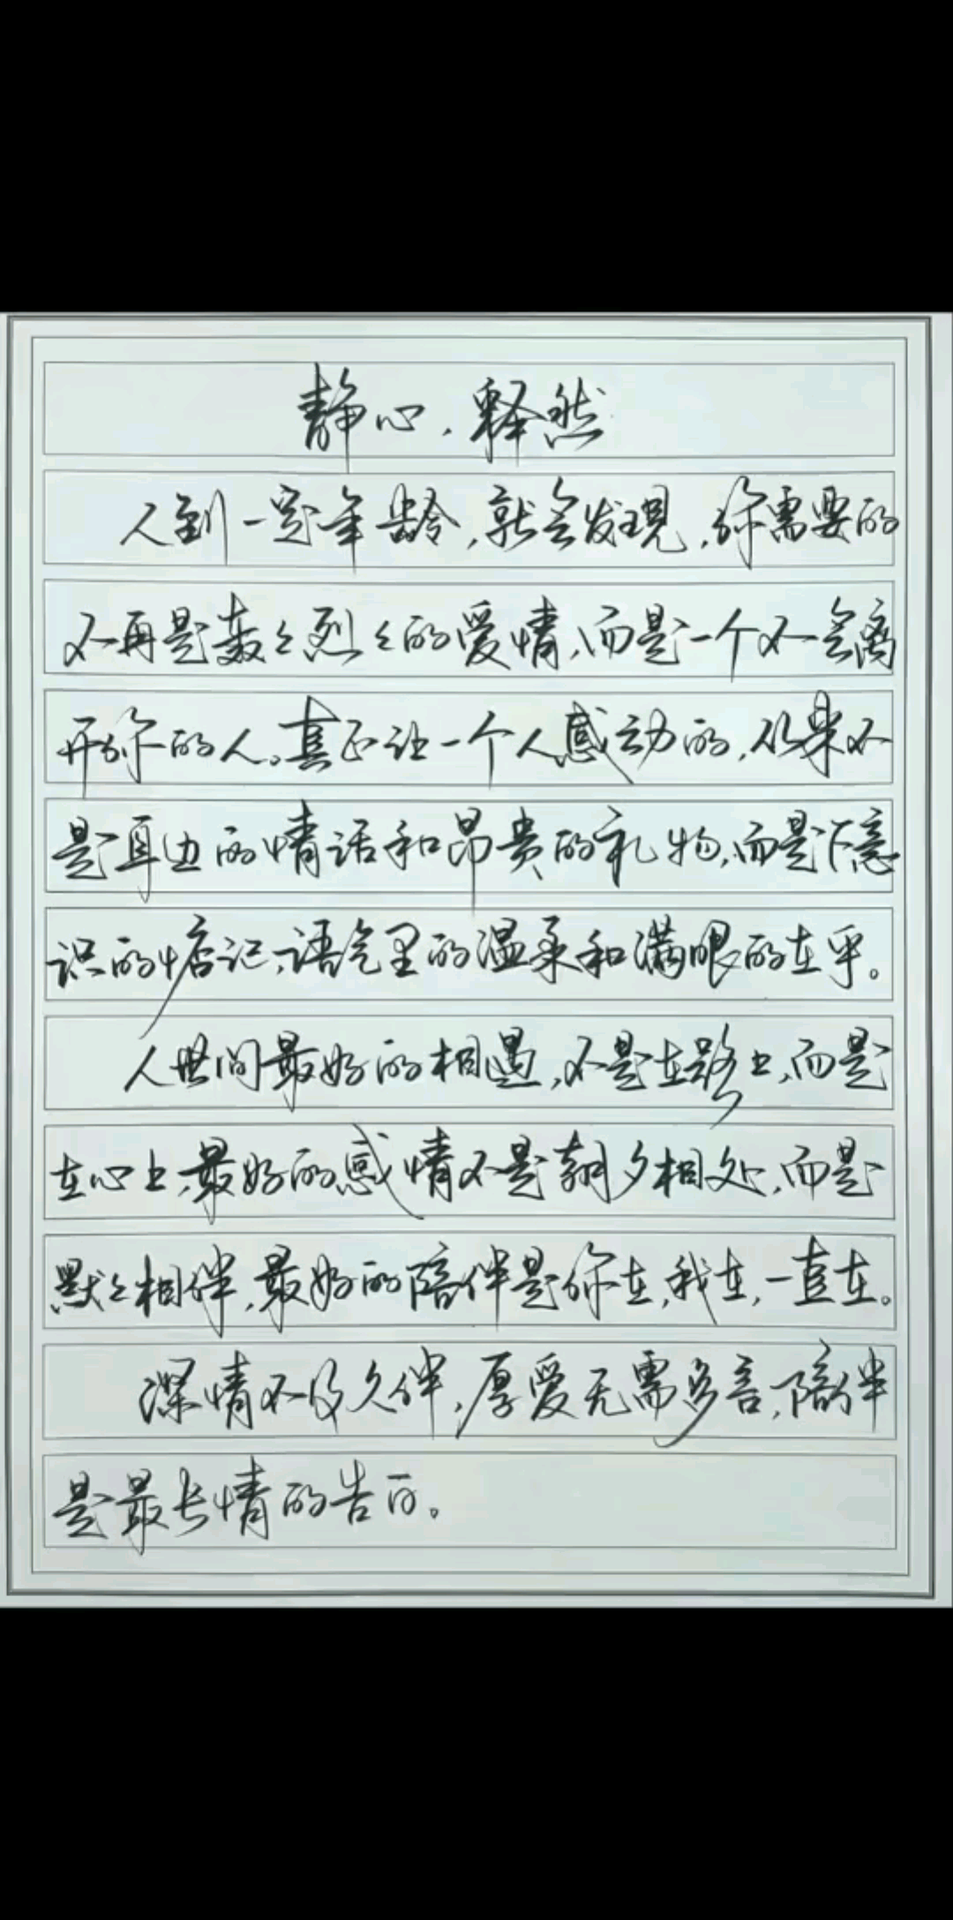 静心，释然
人到一定年龄，就会发现，你需要的
不再是轰々烈々的爱情，而是一个不会离
开你的人。真正让一个人感动的，从来不
是耳边的情话和昂贵的礼物，而是下意
识的惦记，语气里的温柔和满眼的在乎。
人世间最好的相遇，不是在路上，而是
在心上，最好的感情不是朝夕相处，而是
默々相伴，最好的陪伴是你在，我在，一直在。
深情不及久伴，厚爱无需多言，陪伴
是最长情的告白。